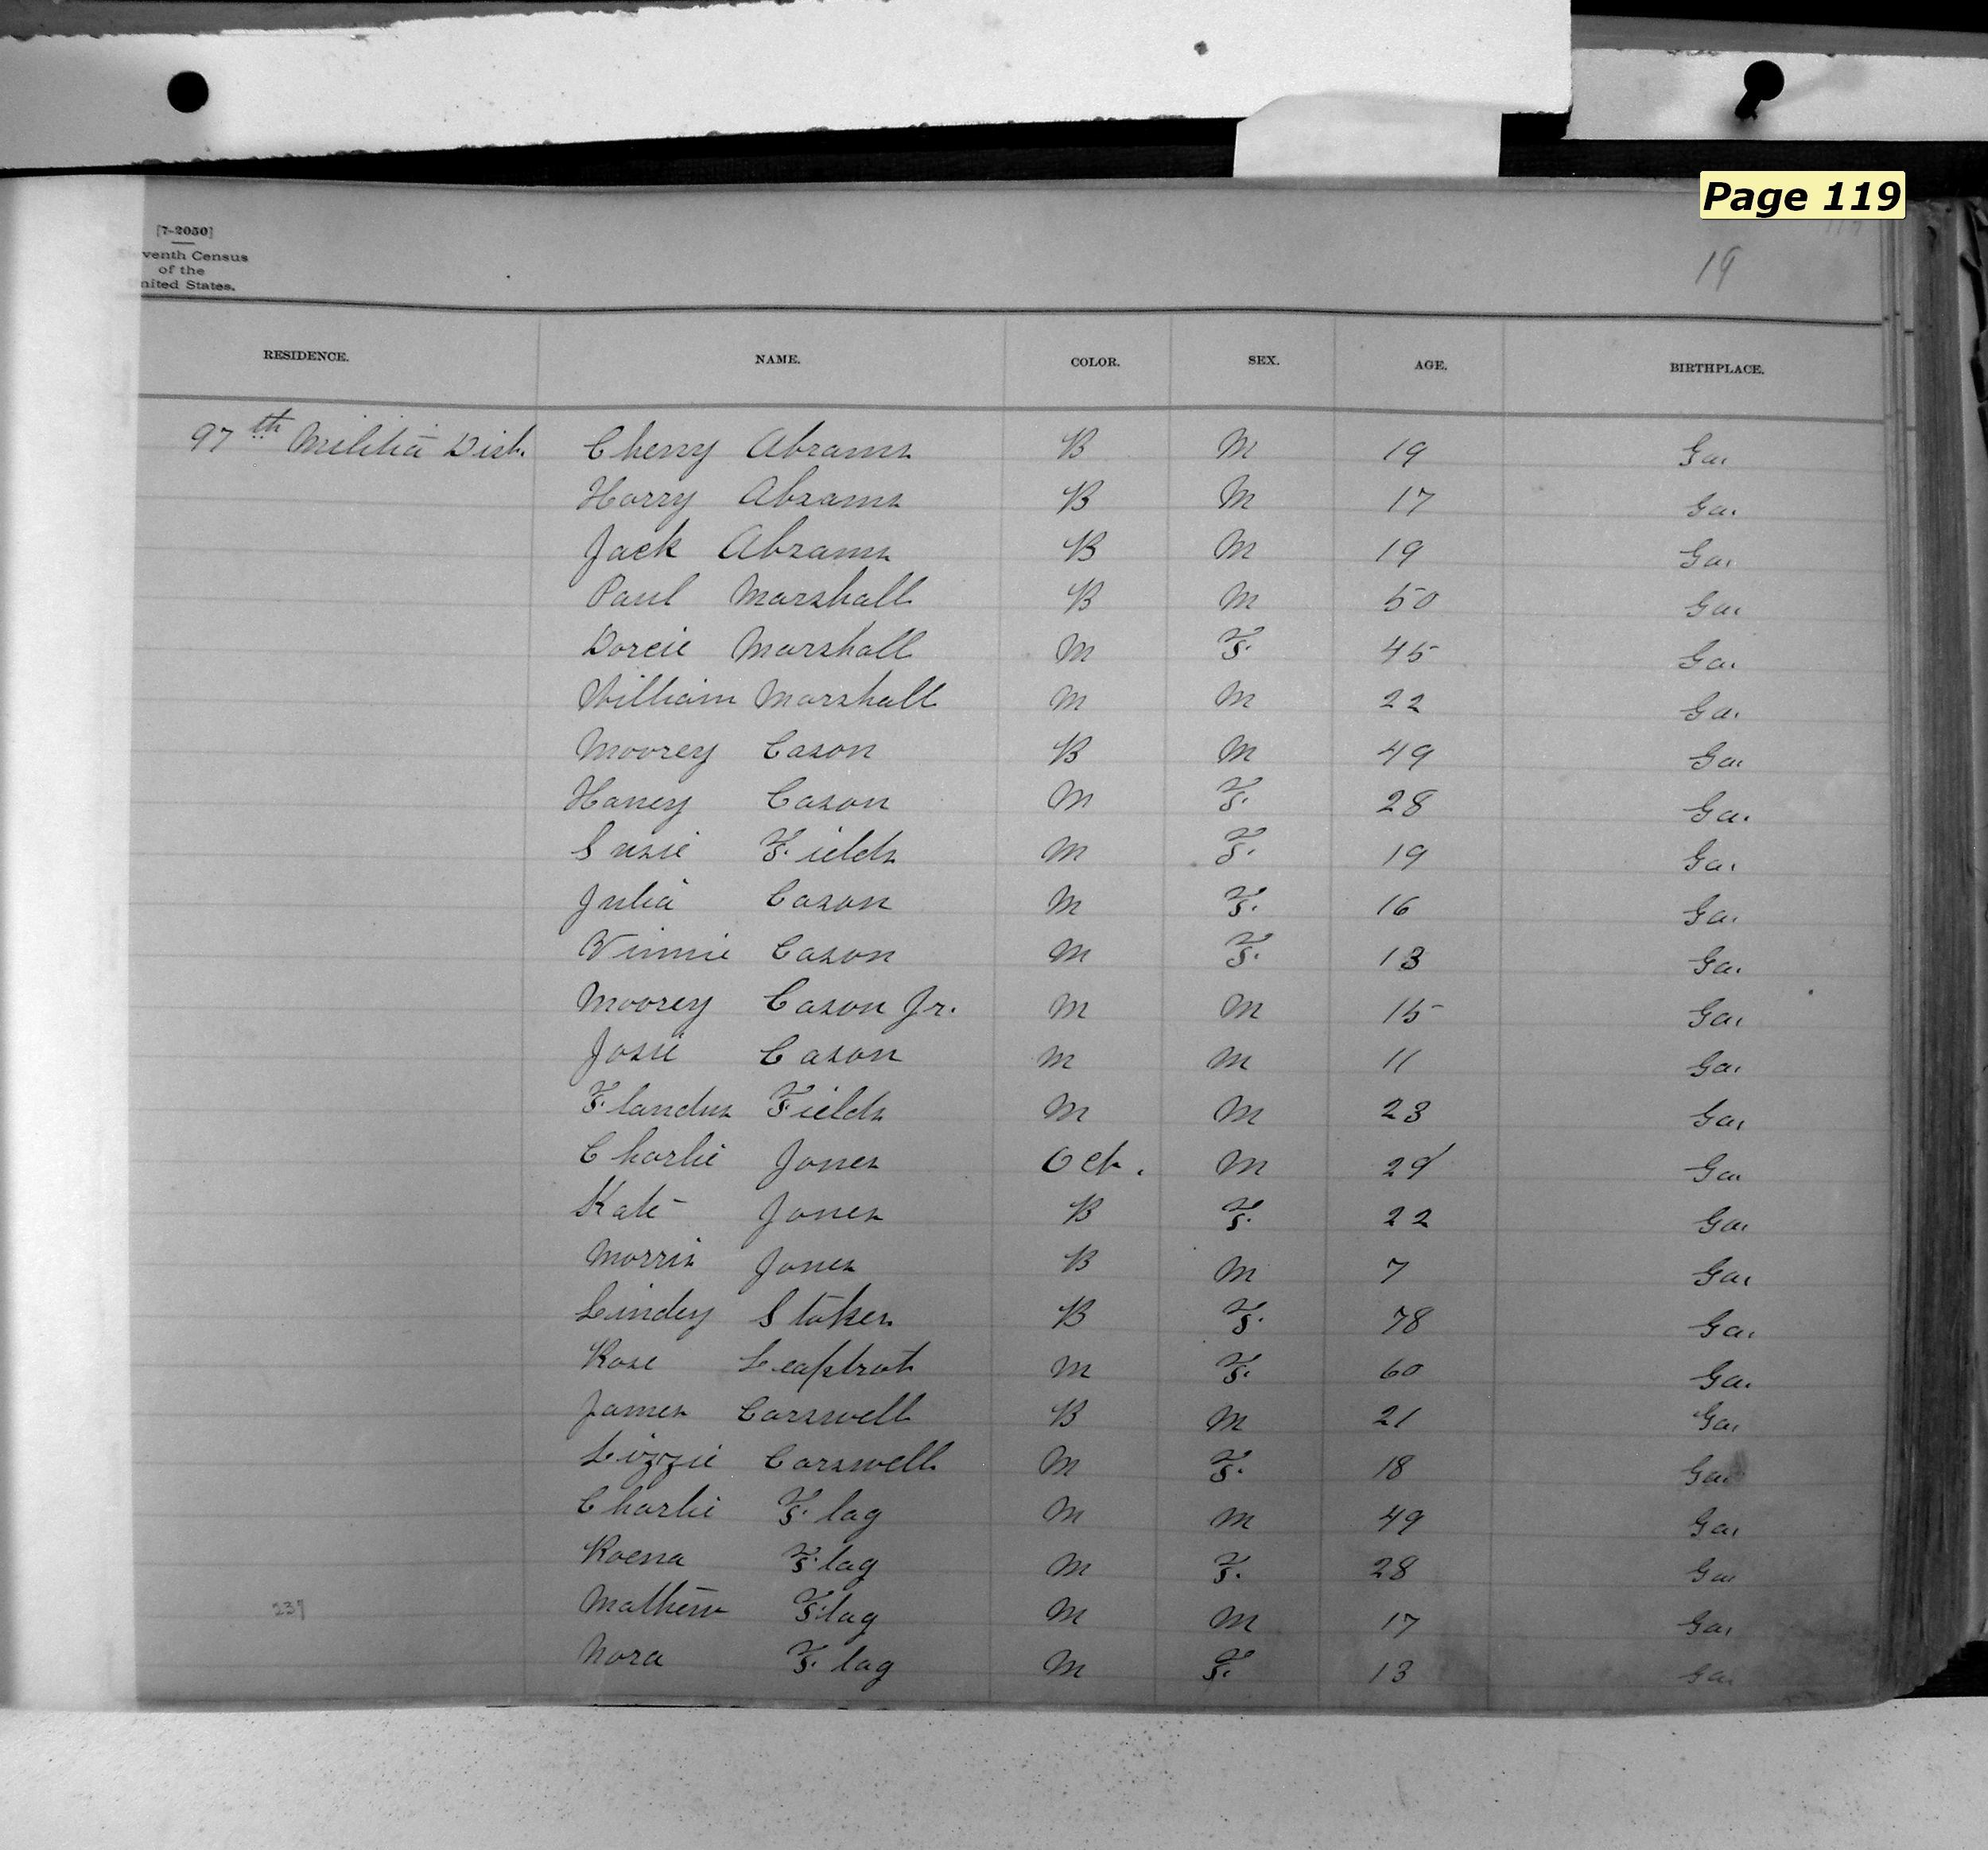 Page 119
[7-2050]
venth Census
of the
nited States.
19
RESIDENCE. NAME. COLOR. SEX. AGE. BIRTHPLACE.
97th Militia Dist. Cherry Abrams B M 19 Ga.
Harry Abrams B M 17 Ga.
Jack Abrams B M 19 Ga.
Paul Marshall B M 50 Ga.
Dorcie Marshall M F. 45 Ga.
William Marshall M M 22 Ga.
Moorey Cason B M 49 Ga.
Haney Cason M F. 28 Ga.
Susie Fields M F. 19 Ga.
Julia Cason M F. 16 Ga.
Vinnie Cason M F. 13 Ga.
Moorey Cason Jr. M M 15 Ga.
Josie Cason M M 11 Ga.
Flandus Fields M M 23 Ga.
Charlie Jones Oct. M 29 Ga.
Kate Jones B F. 22 Ga.
Morris Jones B M 7 Ga.
Lindey Stokes B F. 78 Ga.
Rose Leaptrot M F. 60 Ga.
James Carswell B M 21 Ga.
Lizzie Carswell M F. 18 Ga.
Charlie Flag M M 49 Ga.
Roena Flag M F. 28 Ga.
237 Mathew Flag M M 17 Ga.
Nora Flag M F. 13 Ga.